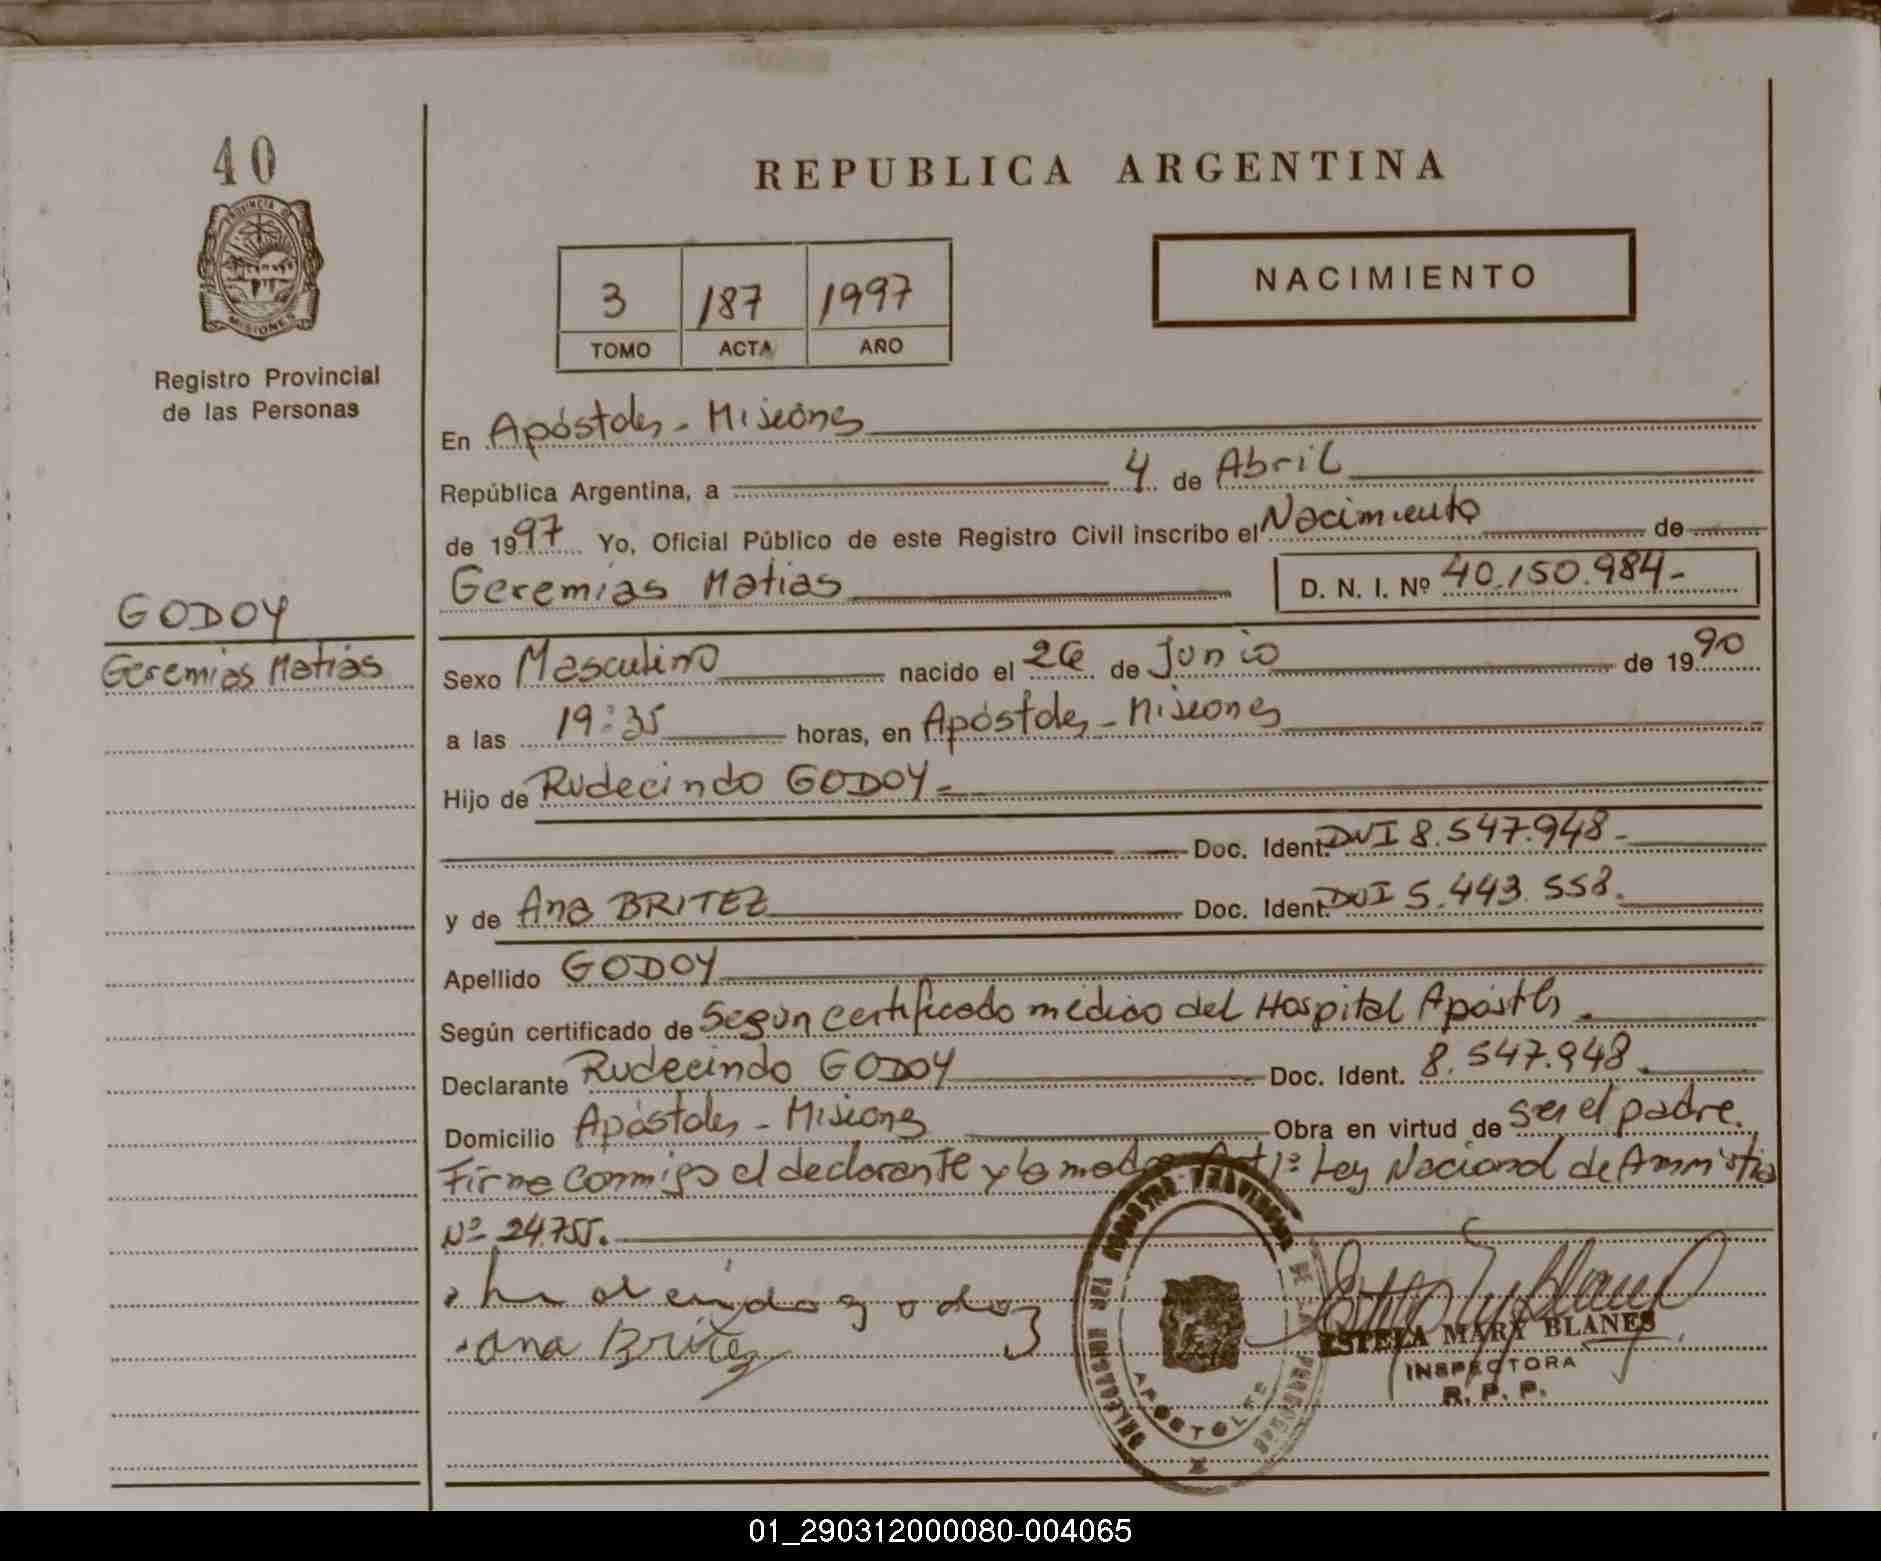 40
PROVINCIA DE
MISIONES
Registro Provincial
de las Personas
REPUBLICA ARGENTINA
NACIMIENTO
3 187 1997
TOMO ACTA AÑO
En Apóstoles - Misiones
República Argentina, a 4 de Abril
de 1997 Yo, Oficial Público de este Registro Civil inscribo el Nacimiento de
Geremias Matias D. N. I. Nº 40.150.984.-
GODOY
Geremias Matias
Sexo Masculino nacido el 26 de Junio de 1990
a las 19:35 horas, en Apóstoles - Misiones
Hijo de Rudecindo GODOY.-
Doc. Ident. DNI 8.547.948.-
y de Ana BRITEZ Doc. Ident. DNI 5.443.558.
Apellido GODOY
Según certificado de Según certificado médico del Hospital Apóstles.
Declarante Rudecindo GODOY Doc. Ident. 8.547.948.
Domicilio Apóstoles - Misiones Obra en virtud de ser el padre.
Firma conmigo el declarante y la madre Art 1º Ley Nacional de Amnistia
Nº 24.755.
Ana Britez
APOSTOLES
ESTELA MARY BLANES
INSPECTORA
R. P. P.
01_290312000080-004065